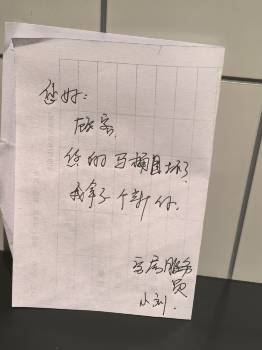 您好：
顾客
您的马桶圈坏了
我拿了个新的.
客房服务
员
小刘.